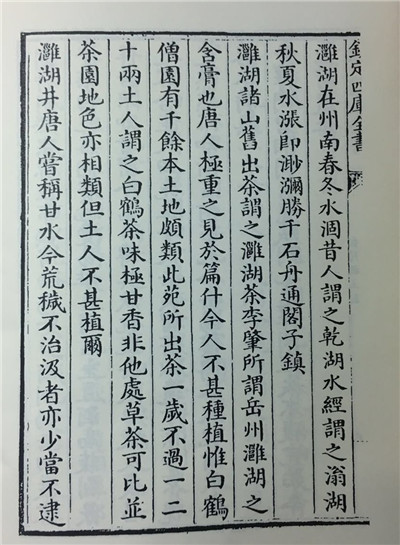 欽定四庫全書
灉湖在州南春冬水涸昔人謂之乾湖水經謂之滃湖
秋夏水漲即渺瀰勝千石舟通閣子鎮
灉湖諸山舊出茶謂之灉湖茶李肇所謂岳州灉湖之
含膏也唐人極重之見於篇什今人不甚種植惟白鶴
僧園有千餘本土地頗類此苑所出茶一歲不過一二
十兩土人謂之白鶴茶味極甘香非他處草茶可比並
茶園地色亦相類但土人不甚植爾
灉湖井唐人嘗稱甘水今荒穢不治汲者亦少當不逮